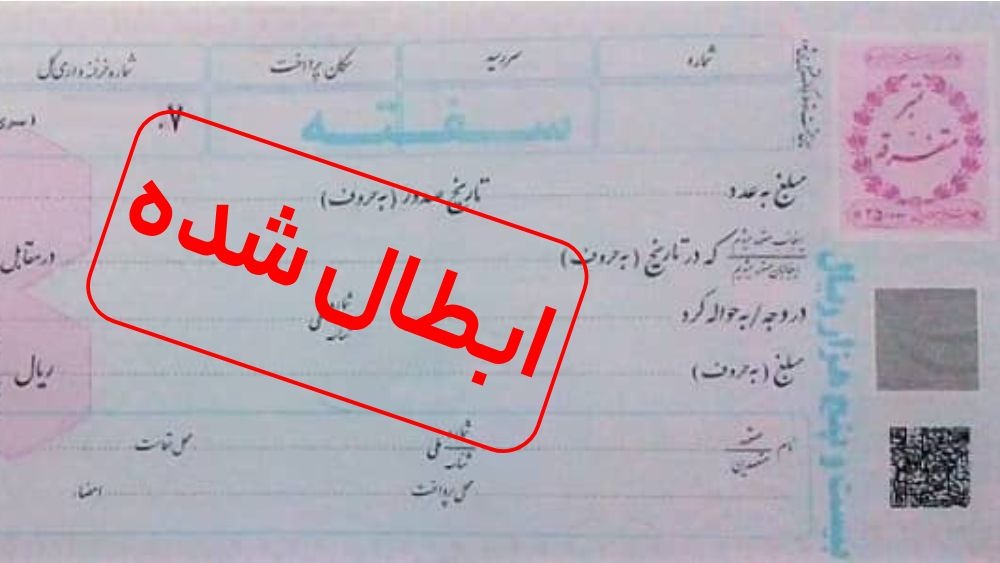 شماره
سررسید
مکان پرداخت
شماره خزانه داری کل
سفته
۷۰
تمبر
متفرقه
مبلغ به عدد
تاریخ صدور (به حروف)
که در تاریخ (به حروف)
در مقابل
در وجه / به حواله کرد
شماره
شناسه
ملی
مبلغ (به حروف)
ریال
نام
متعهد
متعهدین
شماره
شناسه
ملی
محل اقامت
محل پرداخت
امضاء
بیست و پنج هزار ریال
ابطال شده